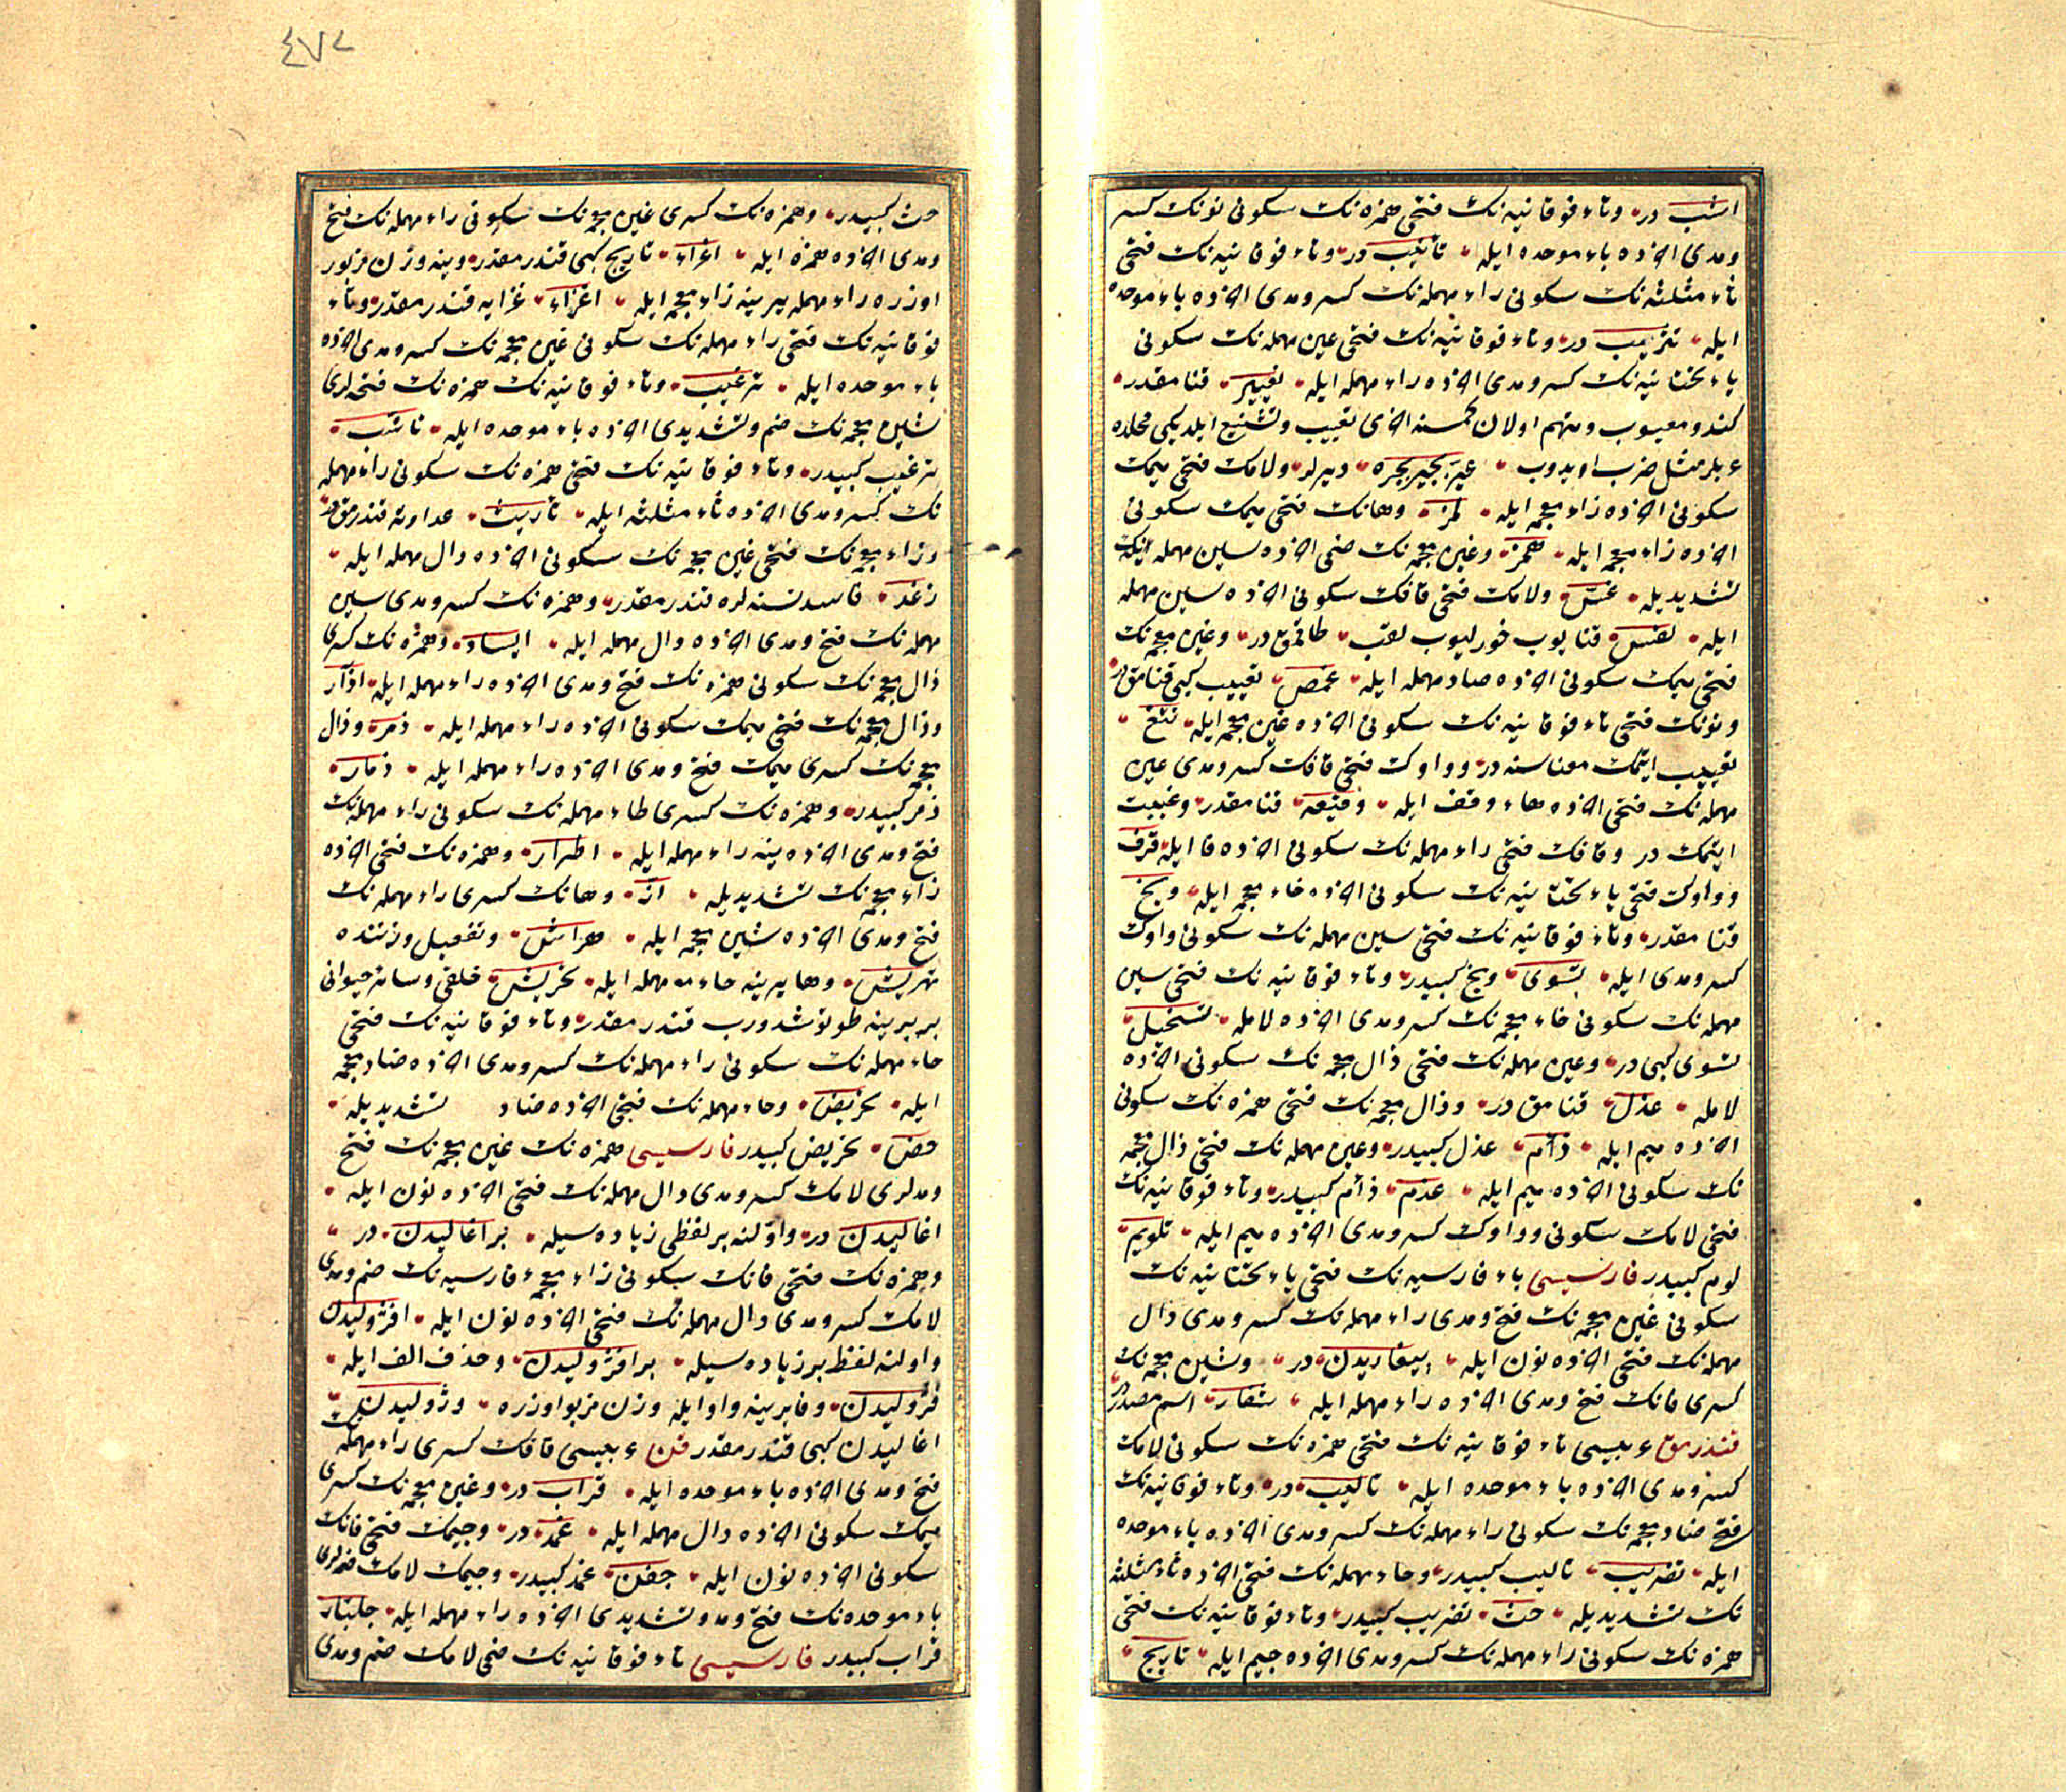 اشب در وتاء فوقانیه نک فتحی همزه نک سکونی نونک کسر
ومدی اخرنده باء موحده ایله تأنیب در وتاء فوقانیه نک فتحی
ثاء مثلثه نک سکونی راء مهمله نک کسر ومدی اخرنده باء موحده
ایله تثریب در وتاء فوقانیه نک فتحی عین مهمله نک سکونی
یاء تحتانیه نک کسر ومدی اخرنده راء مهمله ایله تعییر قنامقدر
کندو معیوب ومتهم اولان کمسنه اخری تعییب وتشنیع ایلدیکی محلده
عربلر مثل ضرب ایدوب عیر بجیر بجره دیرلر ولامک فتحی میمک
سکونی اخرنده زاء معجمه ایله لمز وهانک فتحی میمک سکونی
اخرنده زاء معجمه ایله همز وغین معجمه نک ضمی اخرنده سین مهمله نک
تشدیدیله غس ولامک فتحی قافک سکونی اخرنده سین مهمله
ایله لقس قنایوب خورلیوب لقب طاقمق در وغین معجمه نک
فتحی میمک سکونی اخرنده صاد مهمله ایله غمص تعییب کبی قنامق در
ونونک فتحی تاء فوقانیه نک سکونی اخرنده غین معجمه ایله نتغ
تعییب ایتمک معناسنه در وواوک فتحی قافک کسر ومدی عین
مهمله نک فتحی اخرنده هاء وقف ایله وقیعه قنامقدر وغیبت
ایتمک در وقافک فتحی راء مهمله نک سکونی اخرنده فا ایله قرف
وواوک فتحی یاء تحتانیه نک سکونی اخرنده خاء معجمه ایله ویخ
قنامقدر وتاء فوقانیه نک فتحی سین مهمله نک سکونی واوک
کسر ومدی ایله تسوی ویخ کبیدر وتاء فوقانیه نک فتحی سین
مهمله نک سکونی خاء معجمه نک کسر ومدی اخرنده لامله تسخیل
تسوی کبی در وعین مهمله نک فتحی ذال معجمه نک سکونی اخرنده
لامله عذل قنامق در وذال معجمه نک فتحی همزه نک سکونی
اخرنده میم ایله ذأم عذل کبیدر وعین مهمله نک فتحی ذال معجمه
نک سکونی اخرنده میم ایله عذم ذأم کبیدر وتاء فوقانیه نک
فتحی لامک سکونی وواوک کسر ومدی اخرنده میم ایله تلویم
لوم کبیدر فارسیسی باء فارسیه نک فتحی یاء تحتانیه نک
سکونی غین معجمه نک فتح ومدی راء مهمله نک کسر ومدی دال
مهمله نک فتحی اخرنده نون ایله پیغاریدن در وشین معجمه نک
کسری فانک فتح ومدی اخرنده راء مهمله ایله شفار اسم مصدر در
قندرمق عربیسی تاء فوقانیه نک فتحی همزه نک سکونی لامک
کسر ومدی اخرنده باء موحده ایله تالیب در وتاء فوقانیه نک
فتحی ضاد معجمه نک سکونی راء مهمله نک کسر ومدی اخرنده باء موحده
ایله تضریب تالیب کبیدر وحاء مهمله نک فتحی اخرنده ثاء مثلثه
نک تشدیدیله حث تضریب کبیدر وتاء فوقانیه نک فتحی
همزه نک سکونی راء مهمله نک کسر ومدی اخرنده جیم ایله تاریج
٤٧٢
حث کبیدر وهمزه نک کسری غین معجمه نک سکونی راء مهمله نک فتح
ومدی اخرنده همزه ایله اغراء تاریج کبی قندرمقدر وینه وزن مزبور
اوزره راء مهمله یرینه زاء معجمه ایله اغزاء غزایه قندرمقدر وتاء
فوقانیه نک فتحی راء مهمله نک سکونی غین معجمه نک کسر ومدی اخرنده
باء موحده ایله ترغیب وتاء فوقانیه نک همزه نک فتحه لری
شین معجمه نک ضم وتشدیدی اخرنده باء موحده ایله تاشب
ترغیب کبیدر وتاء فوقانیه نک فتحی همزه نک سکونی راء مهمله
نک کسر ومدی اخرنده ثاء مثلثه ایله تاریث عداوته قندرمق در
وزاء معجمه نک فتحی غین معجمه نک سکونی اخرنده دال مهمله ایله
زغد فاسد نسنه لره قندرمقدر وهمزه نک کسر ومدی سین
مهمله نک فتح ومدی اخرنده دال مهمله ایله ایساد وهمزه نک کسری
ذال معجمه نک سکونی همزه نک فتح ومدی اخرنده راء مهمله ایله اذآر
وذال معجمه نک فتحی میمک سکونی اخرنده راء مهمله ایله ذمر وذال
معجمه نک کسری میمک فتح ومدی اخرنده راء مهمله ایله ذمار
ذمر کبیدر وهمزه نک کسری طاء مهمله نک سکونی راء مهمله نک
فتح ومدی اخرنده ینه راء مهمله ایله اطرار وهمزه نک فتحی اخرنده
زاء معجمه نک تشدیدیله از وهانک کسری راء مهمله نک
فتح ومدی اخرنده شین معجمه ایله هراش وتفعیل وزننده
تهریش وها یرینه حاء مهمله ایله تحریش خلقی وسائر حیوانی
بربرینه طوتوشدروب قندرمقدر وتاء فوقانیه نک فتحی
حاء مهمله نک سکونی راء مهمله نک کسر ومدی اخرنده ضاد معجمه
ایله تحریض وحاء مهمله نک فتحی اخرنده ضاد تشدیدیله
حض تحریض کبیدر فارسیسی همزه نک غین معجمه نک فتح
ومدلری لامک کسر ومدی دال مهمله نک فتحی اخرنده نون ایله
اغالیدن در واولنه بر لفظی زیاده سیله براغالیدن در
وهمزه نک فتحی فانک سکونی زاء معجمه فارسیه نک ضم ومدی
لامک کسر ومدی دال مهمله نک فتحی اخرنده نون ایله افژولیدن
واولنه لفظ بر زیاده سیله برافژولیدن وحذف الف ایله
فژولیدن وفا یرینه واو ایله وزن مزبور اوزره وژولیدن
اغالیدن کبی قندرمقدر قن عربیسی قافک کسری راء مهمله نک
فتح ومدی اخرنده باء موحده ایله قراب در وغین معجمه نک کسری
میمک سکونی اخرنده دال مهمله ایله غمد در وجیمک فتحی فانک
سکونی اخرنده نون ایله جفن غمد کبیدر وجیمک لامک ضمه لری
باء موحده نک فتح ومد وتشدیدی اخرنده راء مهمله ایله جلبار
قراب کبیدر فارسیسی تاء فوقانیه نک ضمی لامک ضم ومدی